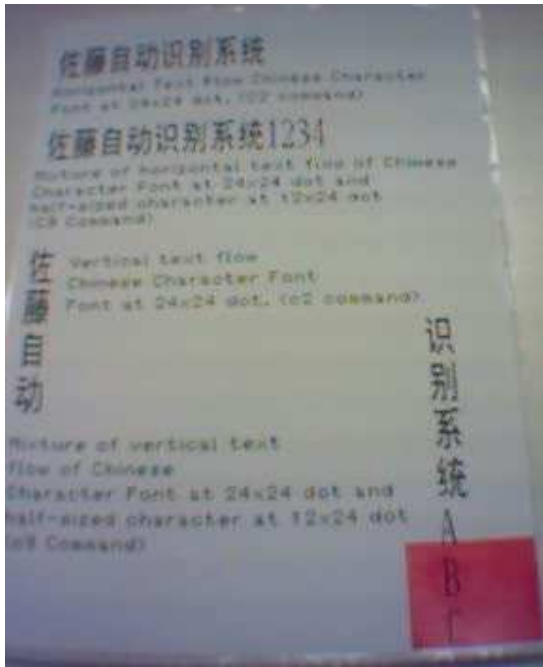 佐藤自动识别系统
Horizontal Text Flow Chinese Character
Font at 24x24 dot. (C2 command)
佐藤自动识别系统1234
Mixture of horizontal text flow of Chinese
Character Font at 24x24 dot and
half-sized character at 12x24 dot
(C9 Command)
佐藤自动
Vertical text flow
Chinese Character Font
Font at 24x24 dot. (c2 command)
识别系统ABC
Mixture of vertical text
flow of Chinese
Character Font at 24x24 dot and
half-sized character at 12x24 dot
(c9 Command)